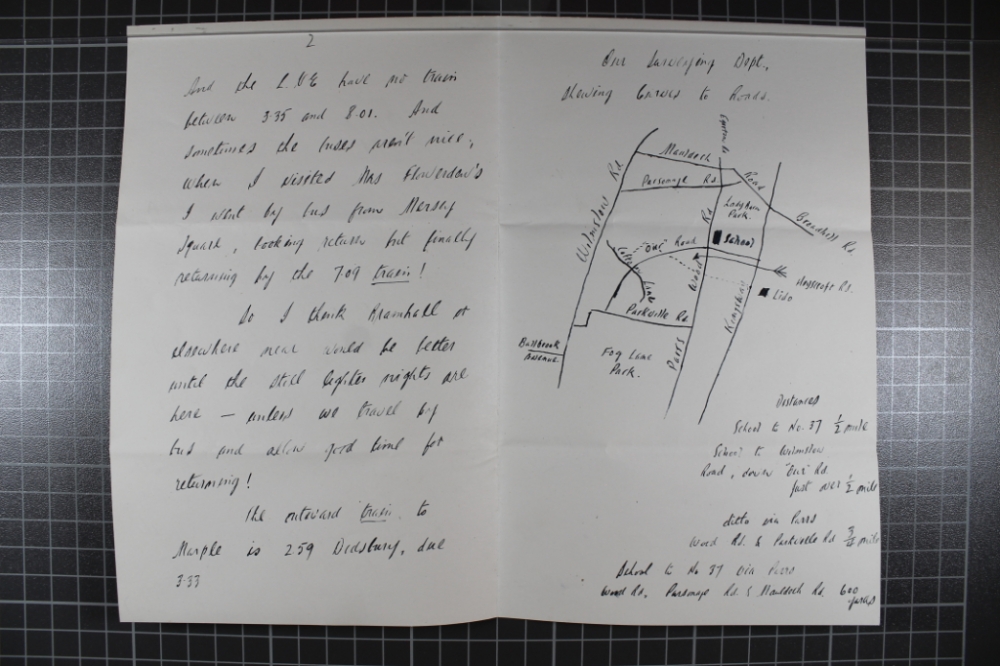 2
And the L.M.S have no train
between 3.35 and 8.01. And
sometimes the buses aren't nice;
when I visited Mrs Flowerdew's
I went by bus from Mersey
Square, booking return but finally
returning by the 709 train!
So I think Bramhall or
elsewhere near would be better
until the still lighter nights are
here — unless we travel by
bus and allow good time for
returning!
The outward train to
Marple is 259 Didsbury, due
3.33
Our Surveying Dept.,
Shewing Curves to Roads.
Wilmslow Rd
Mauldeth Road
Parsonage Rd.
Ladybarn
Park.
Broadhill Rd.
School
"Our" Road
Parrs Wood Rd
Kingsway
Lido
Parkville Rd
Ballbrook
Avenue.
Fog Lane
Park.
Distances
School to No. 37 1/2 mile
School to Wilmslow
Road, down "Our" Rd.
just over 1/2 mile
ditto via Parrs
Wood Rd. & Parkville Rd mile
School to No 37 via Parrs
Wood Rd, Parsonage Rd & Mauldeth Rd. 600
yards